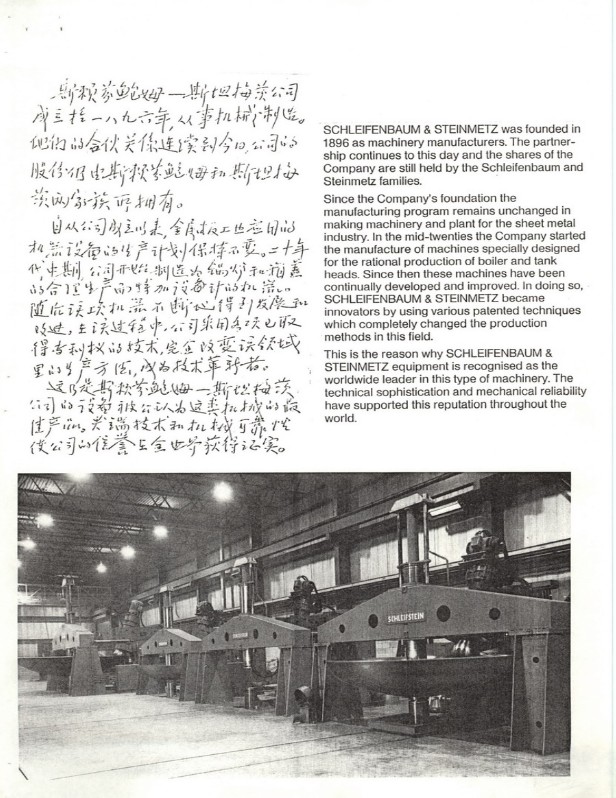 斯赖芬鲍姆—斯坦梅茨公司
成立于一八九六年，从事机械制造。
他们的合伙关係连续到今日，公司的
股份仍由斯赖芬鲍姆和斯坦梅
茨两家族所拥有。
自从公司成立以来，金属板工业应用的
机器设备的生产计划保持不变。二十年
代中期，公司开始制造为锅炉和箱盖
的合理生产而特加设备计的机器。
随后该项机器不断地得到发展和
改进，在该过程中，公司采用各项已取
得专利权的技术，完全改变该领域
里的生产方法，成为技术革新者。
这乃是斯赖芬鲍姆—斯坦梅茨
公司的设备被公认为这类机械的最
佳产品，尖端技术和机械可靠性
使公司的信誉在全世界获得证实。
SCHLEIFENBAUM & STEINMETZ was founded in
1896 as machinery manufacturers. The partner-
ship continues to this day and the shares of the
Company are still held by the Schleifenbaum and
Steinmetz families.
Since the Company's foundation the
manufacturing program remains unchanged in
making machinery and plant for the sheet metal
industry. In the mid-twenties the Company started
the manufacture of machines specially designed
for the rational production of boiler and tank
heads. Since then these machines have been
continually developed and improved. In doing so,
SCHLEIFENBAUM & STEINMETZ became
innovators by using various patented techniques
which completely changed the production
methods in this field.
This is the reason why SCHLEIFENBAUM &
STEINMETZ equipment is recognised as the
worldwide leader in this type of machinery. The
technical sophistication and mechanical reliability
have supported this reputation throughout the
world.
SCHLEIFSTEIN